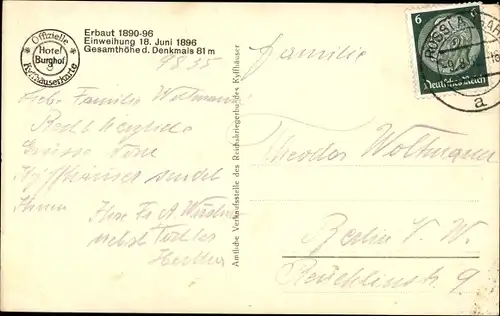 Offizielle
Hotel
Burghof
Kyffhäuserkarte
Erbaut 1890-96
Einweihung 18. Juni 1896
Gesamthöhe d. Denkmals 81 m
9835
Liebe Familie Woltmann
Grüsse vom
Kyffhäuser sendet
Ihnen
Ihre Fr. A.
nebst Tochter
Amtliche Verkaufsstelle des Reichskriegerbundes Kyffhäuser
6
6
Deutsches Reich
a
Familie
Theodor Woltmann
Berlin N. W.
Reuchlinstr. 9.